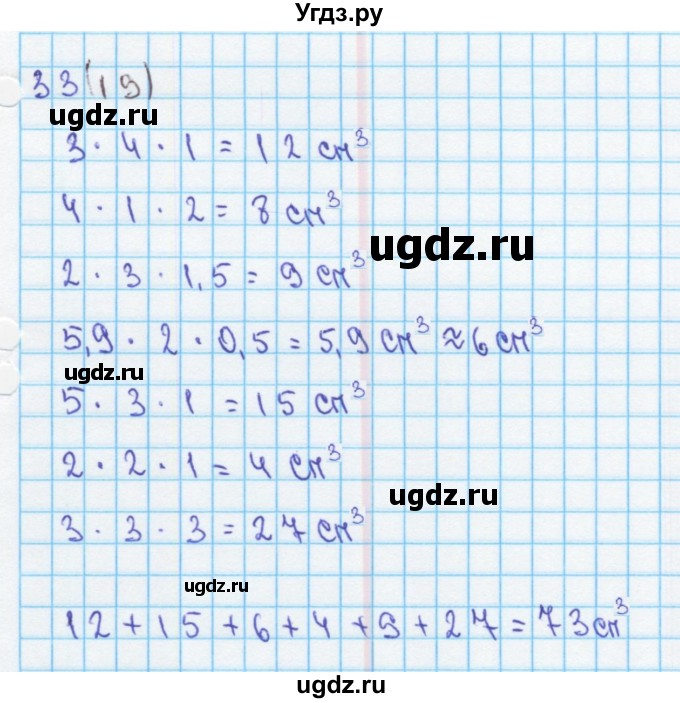 Угдз.ру
33(19)
ugdz.ru
3 · 4 · 1 = 12 см³
4 · 1 · 2 = 8 см³
ugdz.ru
2 · 3 · 1,5 = 9 см³
5,9 · 2 · 0,5 = 5,9 см³ ≈ 6 см³
ugdz.ru
5 · 3 · 1 = 15 см³
2 · 2 · 1 = 4 см³
ugdz.ru
3 · 3 · 3 = 27 см³
ugdz.ru
12 + 15 + 6 + 4 + 9 + 27 = 73 см³
ugdz.ru